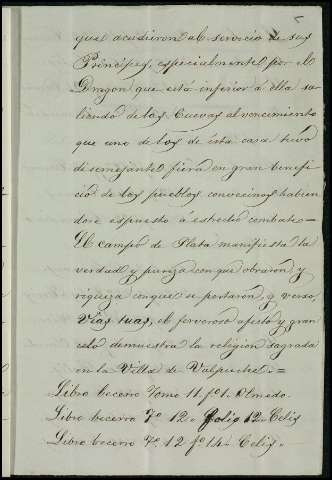 que acudieron al servicio de sus
Principes, especialmente por el
Dragon que está inferior á ella sa-
liendo de las Cuevas al vencimiento
que uno de los de esta casa tuvo
di semejante fiera en gran benefi-
cio de los pueblos convecinos habien
dose espuesto á esbelto combate =
El campo de Plata manifiesta la
verdad y pureza con que obraron, y
riqueza conque se portaron, y verso
Vias tuas, el fervoroso afecto y gran
celo demuestra la religion sagrada
en la Villa de Valpuesta. =
Libro becerro Tomo 11. fº 1. Olmedo.
Libro becerro Tº 12. Folio 12. Celis
Libro becerro Tº. 12 fº 14. Celis.